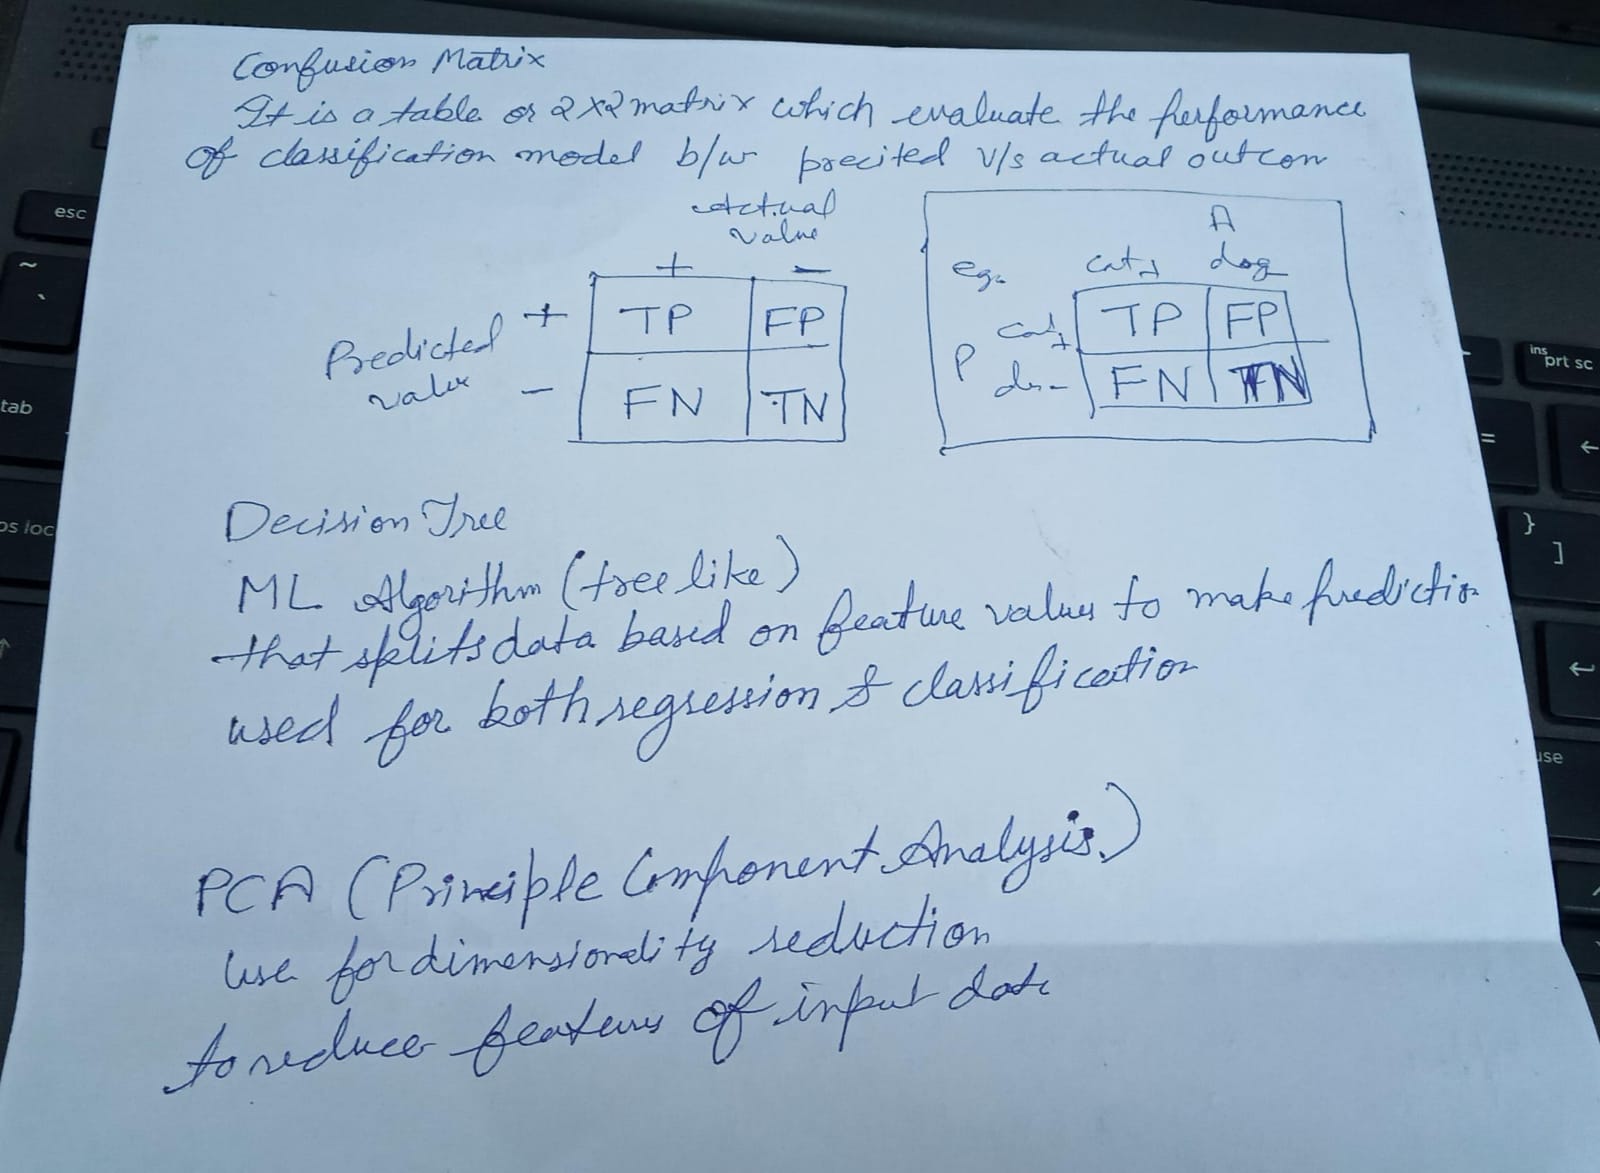 Confusion Matrix
It is a table or 2x2 matrix which evaluate the performance
of classification model b/w precited v/s actual outcom
Actual
value
+ −
Predicted
value
+ TP FP
− FN TN
A
eg. cat+ dog
P
cat+ TP FP
do- FN TN
Decision Tree
ML Algorithm (tree like)
that splits data based on feature values to make prediction
used for both regression & classification
PCA (Principle Component Analysis.)
use for dimensionality reduction
to reduce features of input data
esc
~
`
tab
ps loc
ins
prt sc
=
←
}
]
use